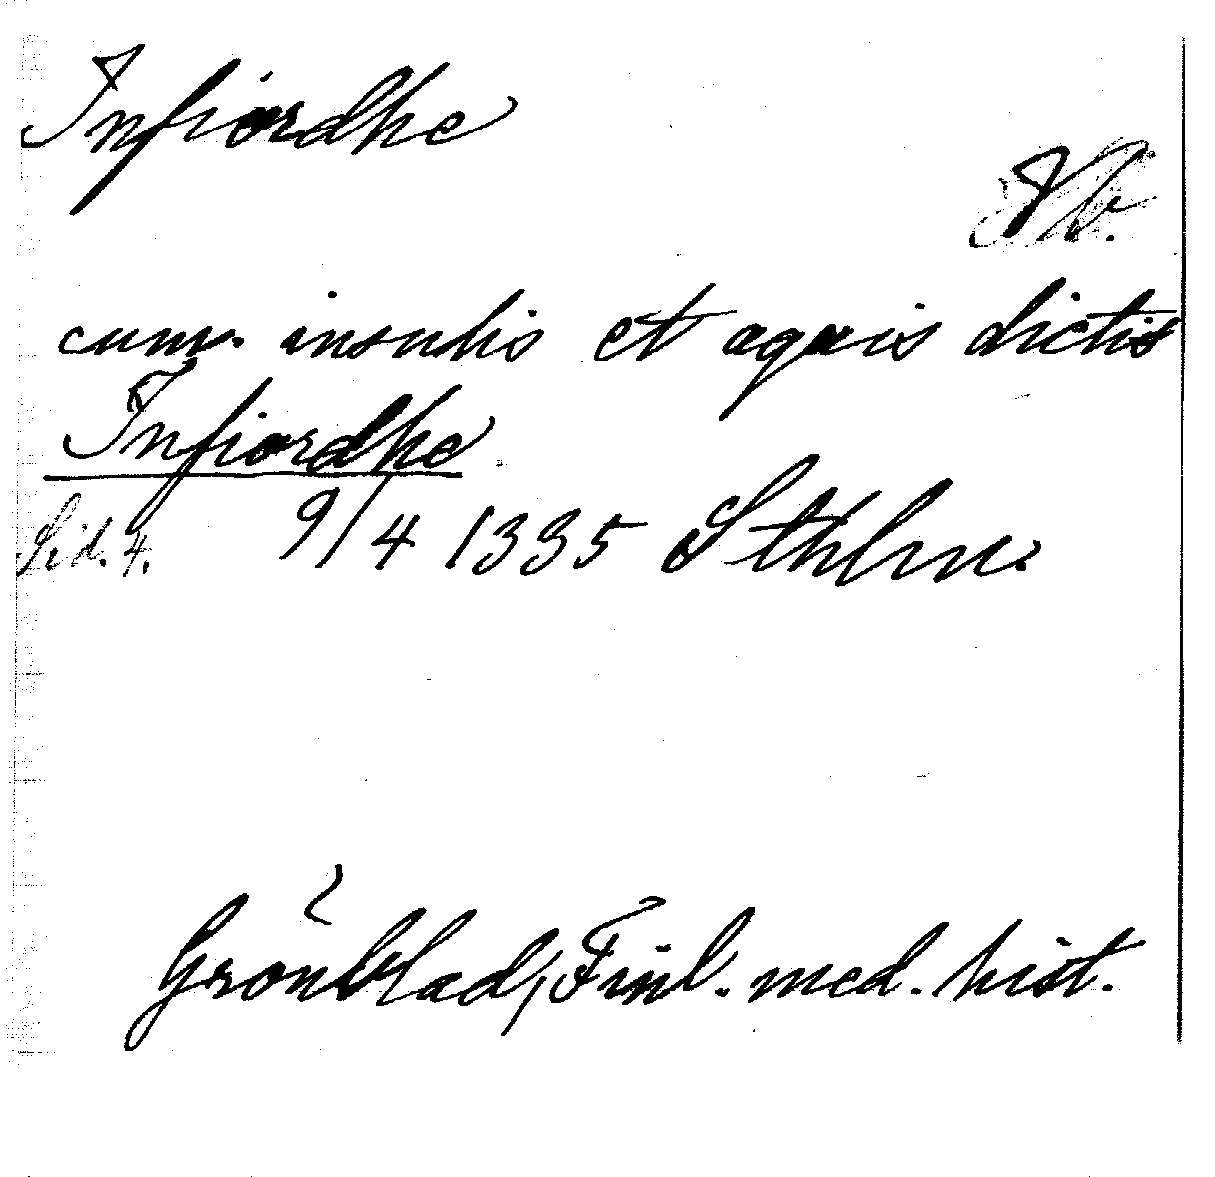 Infiordhe
cum insulis et aquis dictis
Infiordhe
Sid. 4. 9/4 1335 Sthlm.
Grönblad, Finl. med. hist.